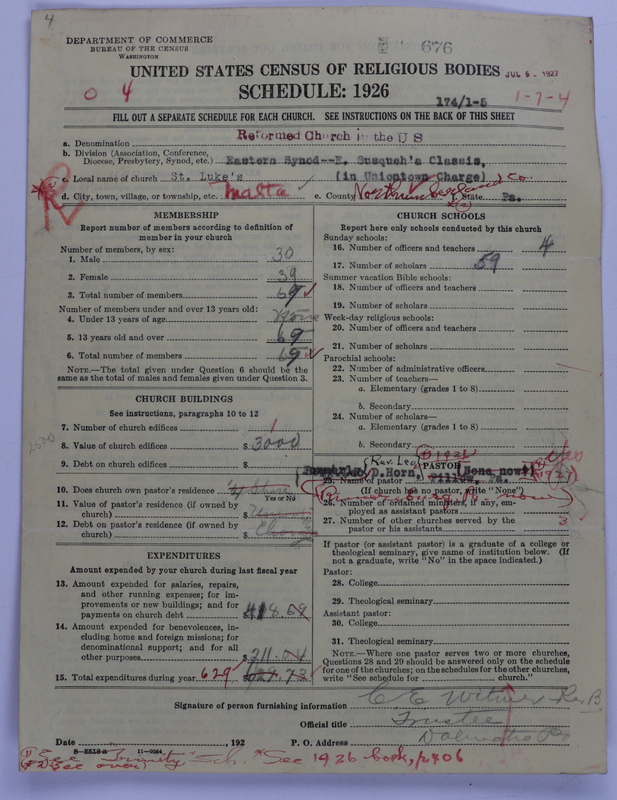 4
DEPARTMENT OF COMMERCE
BUREAU OF THE CENSUS
WASHINGTON
676
UNITED STATES CENSUS OF RELIGIOUS BODIES
JUL 6 - 1927
SCHEDULE: 1926
0 4
174/1-5
1-7-4
FILL OUT A SEPARATE SCHEDULE FOR EACH CHURCH. SEE INSTRUCTIONS ON THE BACK OF THIS SHEET
a. Denomination Reformed Church in the U S
b. Division (Association, Conference,
Diocese, Presbytery, Synod, etc.) Eastern Synod--E. Susqueh's Classis,
c. Local name of church St. Luke's (in Uniontown Charge)
d. City, town, village, or township, etc. Malta e. County Northumberland Co. f. State Pa.
MEMBERSHIP
Report number of members according to definition of
member in your church
Number of members, by sex:
1. Male 30
2. Female 39
3. Total number of members 69
Number of members under and over 13 years old:
4. Under 13 years of age None
5. 13 years old and over 69
6. Total number of members 69
NOTE.—The total given under Question 6 should be the
same as the total of males and females given under Question 3.
CHURCH BUILDINGS
See instructions, paragraphs 10 to 12
7. Number of church edifices 1
8. Value of church edifices $ 3000
9. Debt on church edifices $
10. Does church own pastor's residence
Yes or No
11. Value of pastor's residence (if owned by
church) $
12. Debt on pastor's residence (if owned by
church) $
EXPENDITURES
Amount expended by your church during last fiscal year
13. Amount expended for salaries, repairs,
and other running expenses; for im-
provements or new buildings; and for
payments on church debt $ 418.69
14. Amount expended for benevolences, in-
cluding home and foreign missions; for
denominational support; and for all
other purposes $ 211.04
15. Total expenditures during year 629 $
CHURCH SCHOOLS
Report here only schools conducted by this church
Sunday schools:
16. Number of officers and teachers 4
17. Number of scholars 59
Summer vacation Bible schools:
18. Number of officers and teachers
19. Number of scholars
Week-day religious schools:
20. Number of officers and teachers
21. Number of scholars
Parochial schools:
22. Number of administrative officers
23. Number of teachers—
a. Elementary (grades 1 to 8)
b. Secondary
24. Number of scholars—
a. Elementary (grades 1 to 8)
b. Secondary
Rev. Leo
PASTOR
Formerly D.Horn, None now
25. Name of pastor Pillow, Pa.
(If church has no pastor, write "None")
26. Number of ordained ministers, if any, em-
ployed as assistant pastors
27. Number of other churches served by the
pastor or his assistants 3
If pastor (or assistant pastor) is a graduate of a college or
theological seminary, give name of institution below. (If
not a graduate, write "No" in the space indicated.)
Pastor:
28. College
29. Theological seminary
Assistant pastor:
30. College
31. Theological seminary
NOTE.—Where one pastor serves two or more churches,
Questions 28 and 29 should be answered only on the schedule
for one of the churches; on the schedules for the other churches,
write "See schedule for church."
Signature of person furnishing information C E Witmer
Official title Trustee
Date , 192 P. O. Address Dalmatia Pa
8-5518a 11-9084
See Trinity Sch *See 1926 book, p406